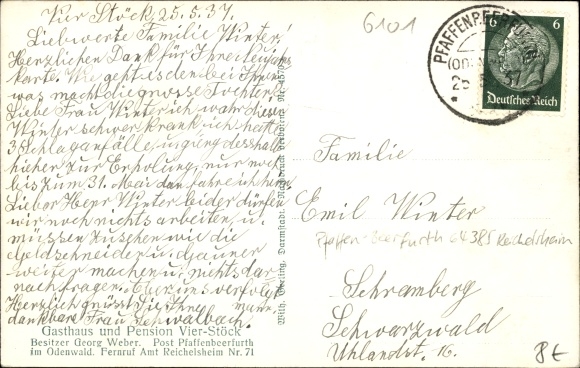 Vier Stöck, 25.5.37.
Liebwerte Familie Winter
Herzlichen Dank für Ihre
karte. Wie geht es den bei Ihnen
was macht die grosse Tochter
Liebe Frau Winter ich wahr diesen
Winter schwer krank ich hatte
3 Schlaganfälle, u. ging desshalb
hieher zur Erholung, nur noch
bis zum 31. Mai dan fahre ich
Lieber Herr Winter beider dürfen
wir noch nichts arbeiten, u.
müssen zusehen wie die
Geldschneider u. Gauner
weiter machen u. nichts dar
nach fragen.
Herzlich grüsst Sie Ihre
dankbare Frau Schwalbach.
Gasthaus und Pension Vier-Stöck
Besitzer Georg Weber. Post Pfaffenbeerfurth
im Odenwald. Fernruf Amt Reichelsheim Nr. 71
Wilh. Gerling, Darmstadt. Nachdruck verboten.
6101
PFAFFEN-BEERFURTH
(ODENWALD)
25.5.37
6 6
Deutsches Reich
Familie
Emil Winter
Pfaffen-Beerfurth 64385 Reichelsheim
Schramberg
Schwarzwald
Uhlandst. 16.
8€